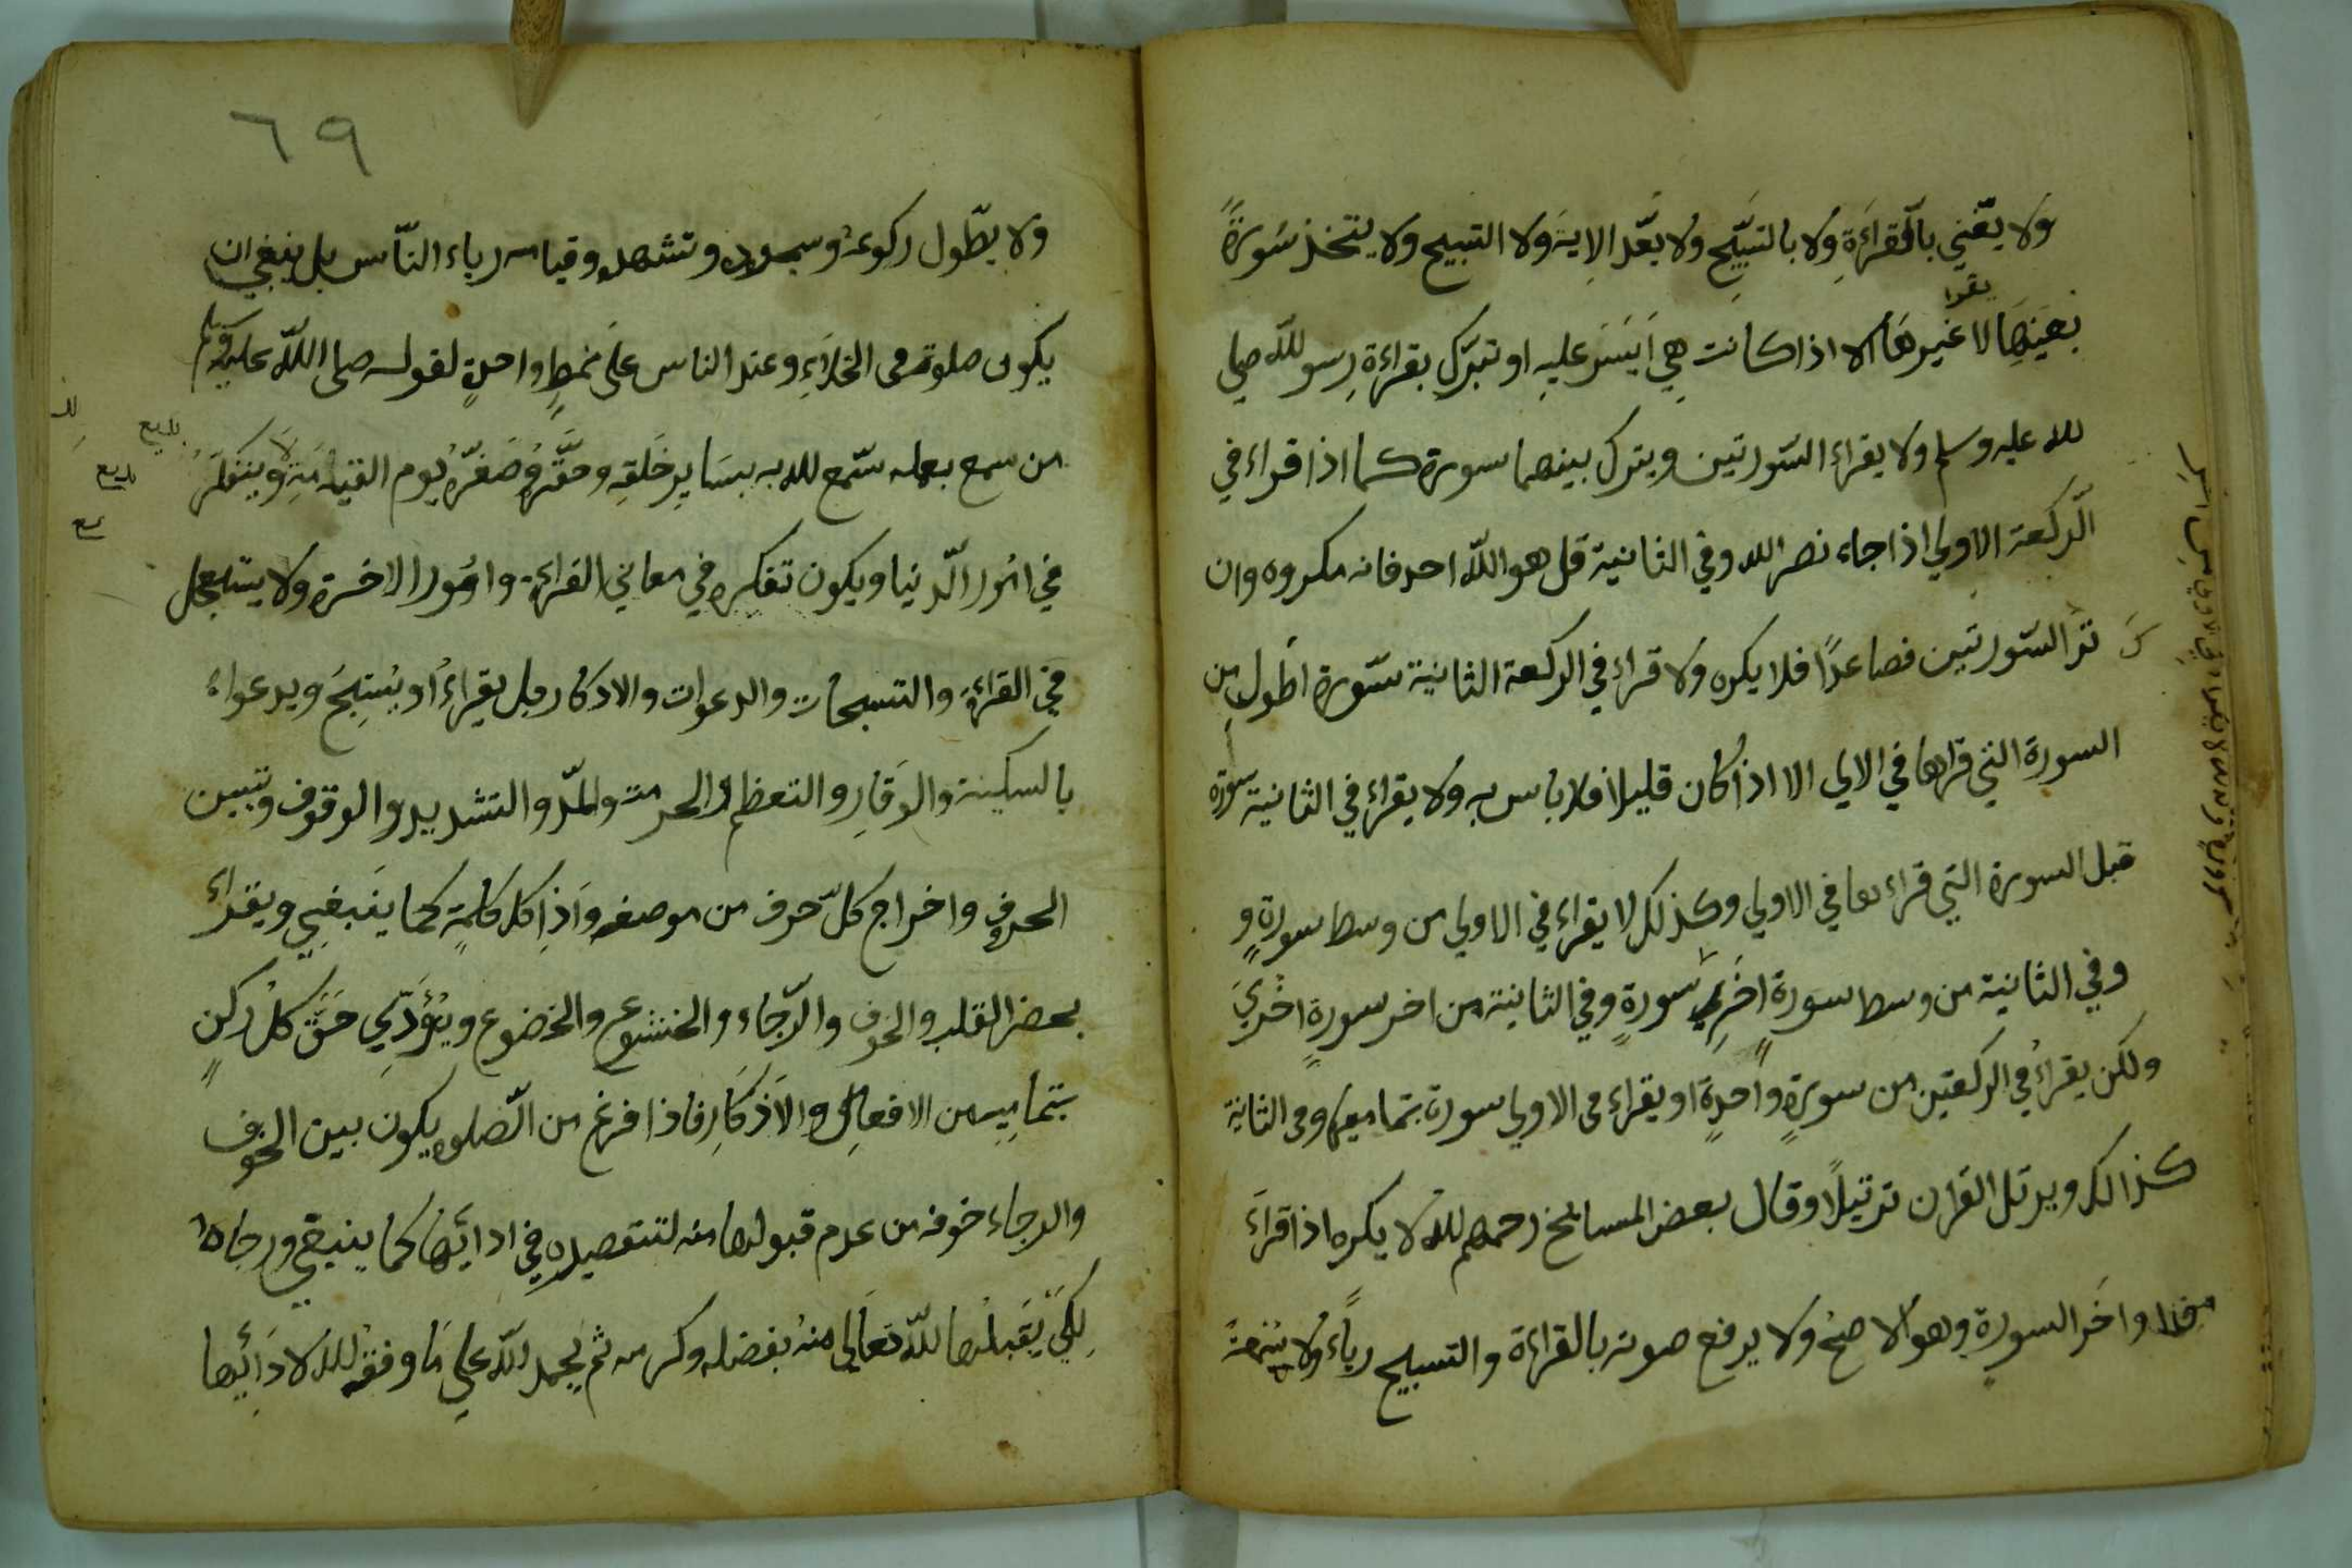 ولا يغني بالقراءة ولا بالتسبيح ولا يعد الاية ولا التسبيح ولا يتخذ سورة
يقرا
بعينها لا غيرها الا اذا كانت هي ايسر عليه او تبرك بقراءة رسول الله صلي
الله عليه وسلم ولا يقراء السورتين ويترك بينهما سورة كما اذا قراء في
الركعة الاولي اذا جاء نصر الله وفي الثانية قل هو الله احد فانه مكروه وان
ترك السورتين فصاعدا فلا يكره ولا قراء في الركعة الثانية سورة اطول من
السورة التي قراها في الاولي الا اذا كان قليلا فلا باس به ولا يقراء في الثانية سورة
قبل السورة التي قراءها في الاولي وكذلك لا يقراء في الاولي من وسط سورة و
وفي الثانية من وسط سورة اخري سورة وفي الثانية من اخر سورة اخري
ولكن يقراء في الركعتين من سورة واحدة او يقراء في الاولي سورة بتمامها وفي الثانية
كذالك ويرتل القران ترتيلا وقال بعض المسايخ رحمهم الله لا يكره اذا قراء
واخر السورة وهو الاصح ولا يرفع صوته بالقراءة والتسبيح رياء ولا سمعة
٦٩
ولا يطول ركوعه وسجوده وتشهده وقيامه رياء الناس بل ينبغي ان
يكون صلوته في الخلاء وعند الناس على نمط واحدة لقوله صلى الله عليه وسلم
من سمع بعمله سمع الله به بساير خلقه وحقره وصغره يوم القيامة ولا يتفكر
في امور الدنيا ويكون تفكره في معاني القراءة وامور الاخرة ولا يستعجل
في القراءة والتسبيحات والدعوات والاذكار بل يقراء او يسبح ويدعواه
بالسكينة والوقار والتعظم والحرمة والمد والتشديد والوقوف وتبيين
الحروف واخراج كل حرف من موضعه واذا كل كلمة كما ينبغي ويقراء
بحضر القلب والخوف والرجاء والخشوع والخضوع ويؤدي حق كل ركن
بتمامه من الافعال والاذكار فاذا فرغ من الصلوه يكون بين الخوف
والرجاء خوفه من عدم قبولها منه لتقصيره في ادائها كما ينبغي ورجاه
لكي يقبلها الله تعالى منه بفضله وكرمه ثم يحمد الله علي ما وفقه الله لادائها